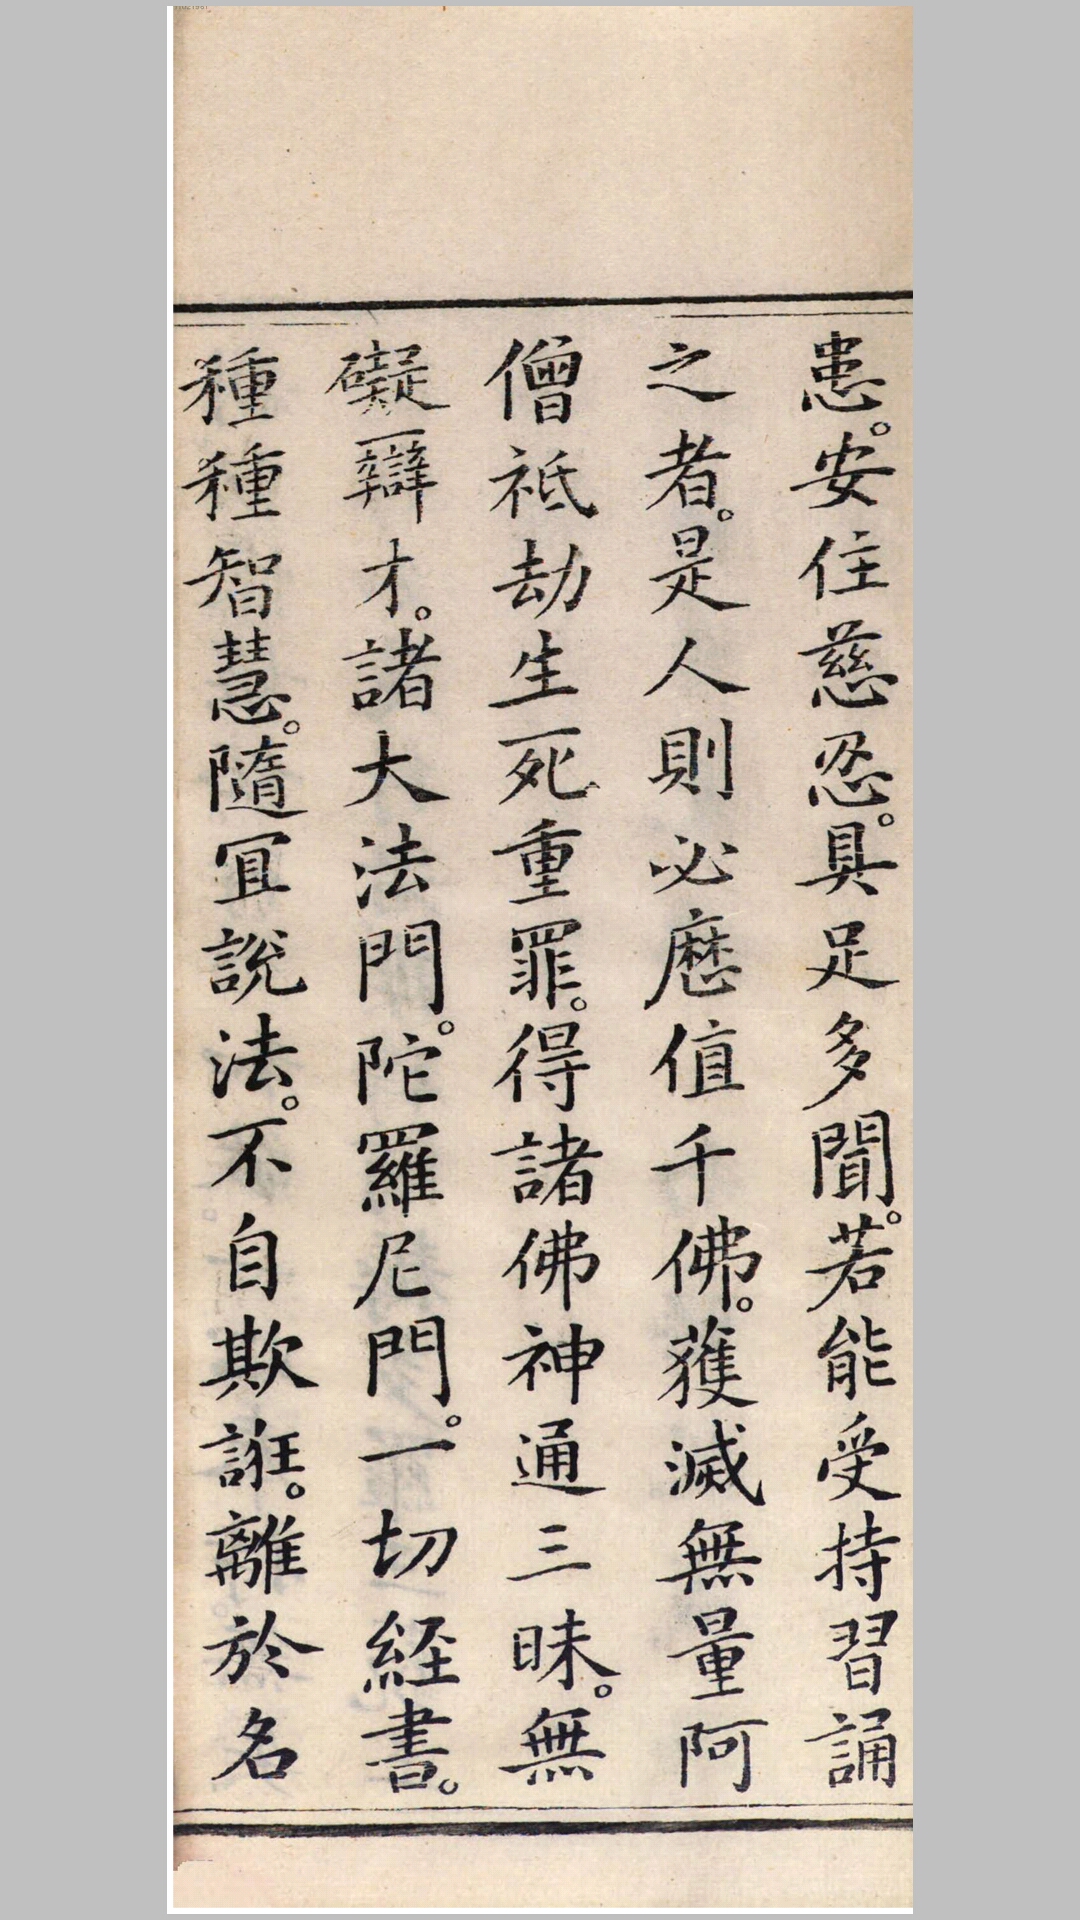 恚。安住慈忍。具足多聞。若能受持習誦
之者。是人則必歷值千佛。獲滅無量阿
僧祇劫生死重罪。得諸佛神通三昧。無
礙辯才。諸大法門。陀羅尼門。一切經書。
種種智慧。隨宜說法。不自欺誑。離於名